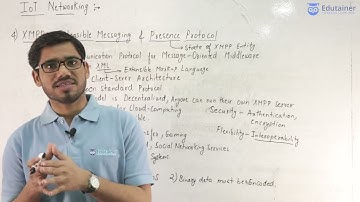 IoT Networking :-
Edutainer
4) XMPP Messaging & Presence Protocol
State of XMPP Entity
Communication Protocol for Message-Oriented Middleware
XML Extensible Mark-up Language
Client-Server Architecture
Open Standard Protocol
Model is Decentralized, Anyone can run their own XMPP Server
Cloud-Computing
Security - Authentication,
Encryption
Flexibility - Interoperability
Gaming
Social Networking Services
System
2) Binary data must be Encoded,